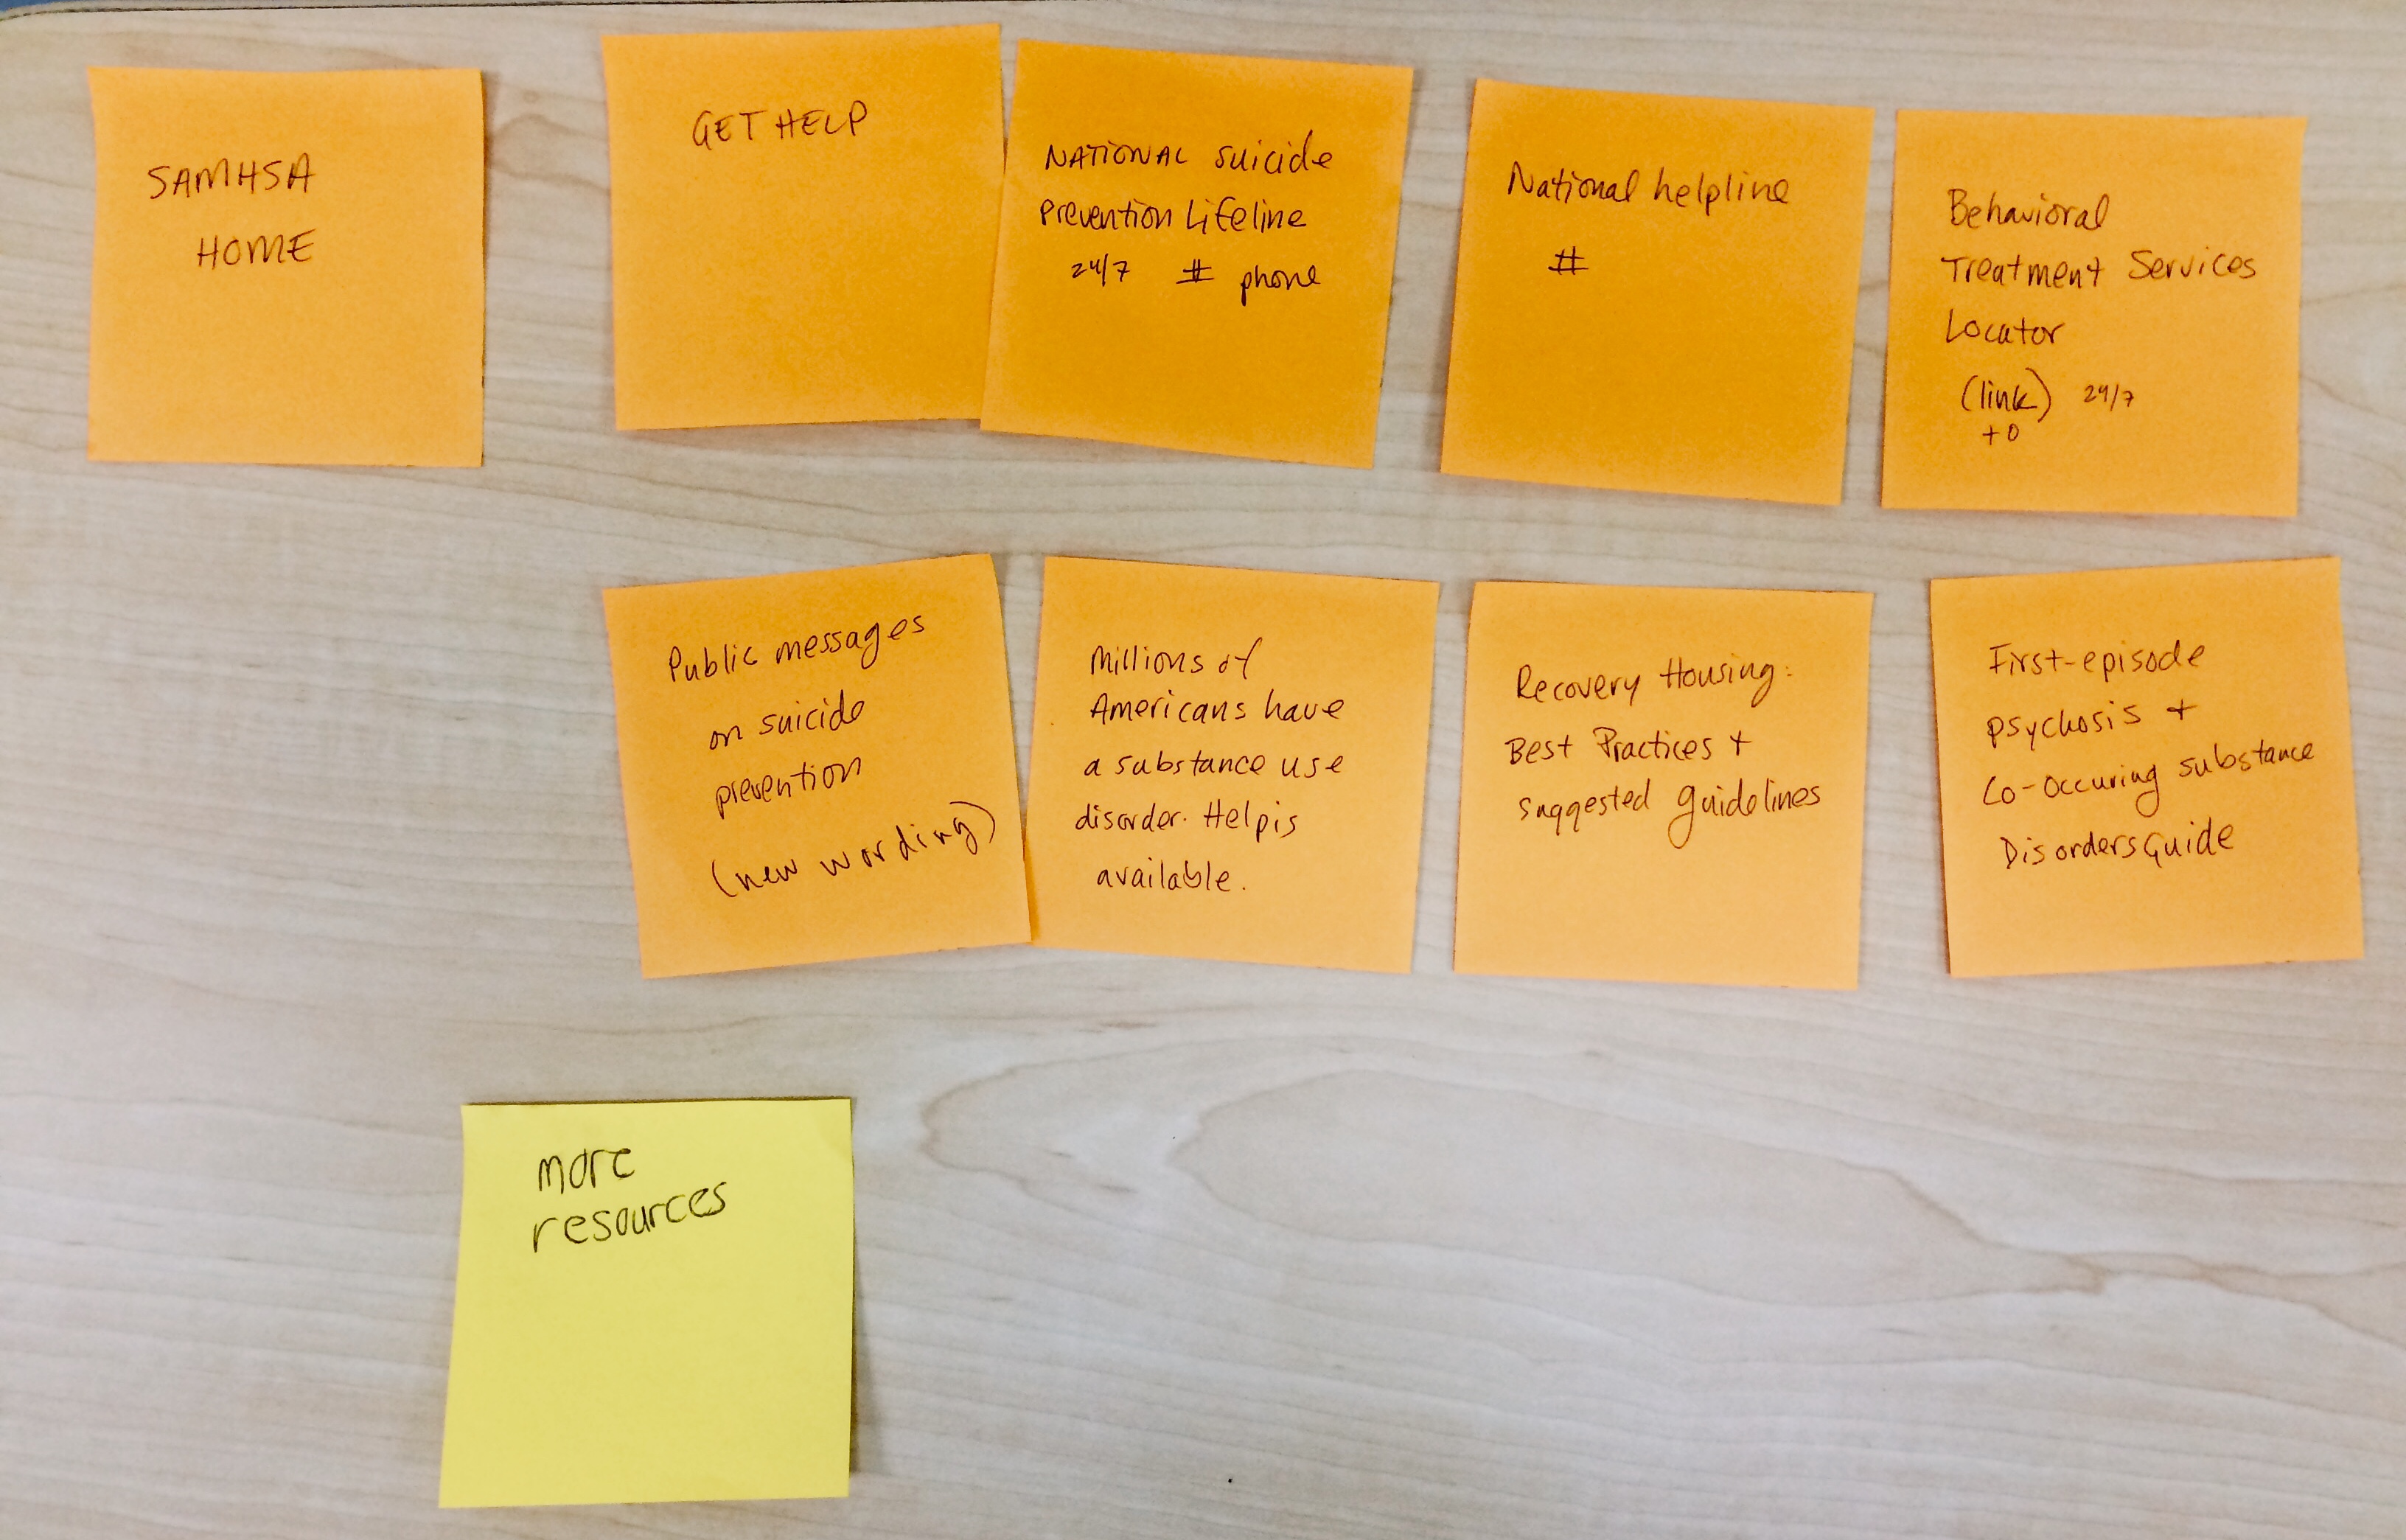 SAMHSA
HOME
GET HELP
NATIONAL suicide
Prevention Lifeline
24/7 # phone
National helpline
#
Behavioral
Treatment Services
Locator
(link) 24/7
+0
Public messages
on suicide
prevention
(new wording)
Millions of
Americans have
a substance use
disorder. Help is
available.
Recovery Housing:
Best Practices +
Suggested guidelines
First-episode
psychosis +
Co-occuring substance
Disorders Guide
more
resources